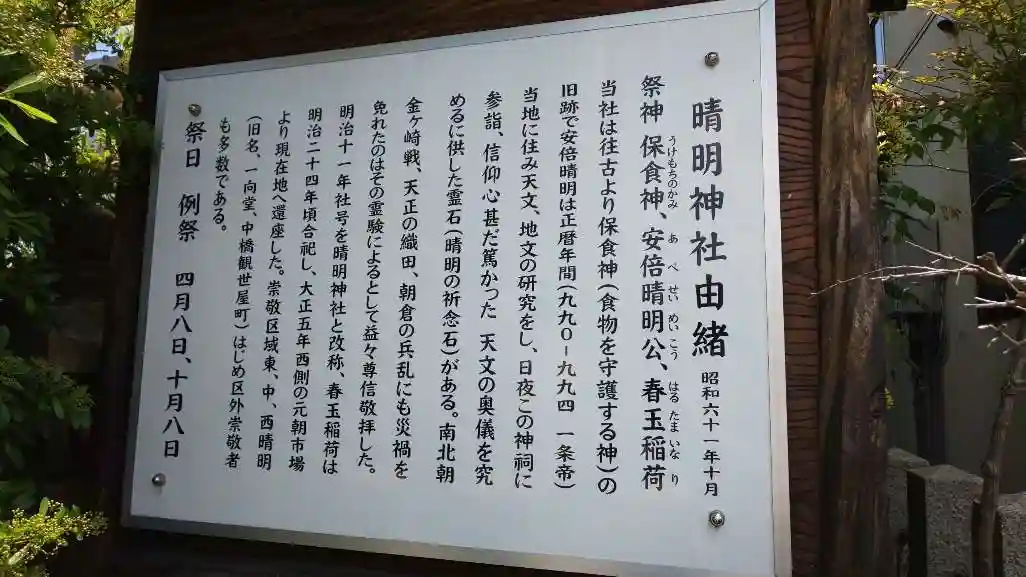 晴明神社由緒 昭和六十一年十月
祭神 保食神、安倍晴明公、春玉稲荷
うけもちのかみ あべせいめいこう はるたまいなり
当社は往古より保食神(食物を守護する神)の
旧跡で安倍晴明は正暦年間(九九０-九九四 一条帝)
当地に住み天文、地文の研究をし、日夜この神祠に
参詣、信仰心甚だ篤かった 天文の奥儀を究
めるに供した霊石(晴明の祈念石)がある。南北朝
金ヶ崎戦、天正の織田、朝倉の兵乱にも災禍を
免れたのはその霊験によるとして益々尊信敬拝した。
明治十一年社号を晴明神社と改称、春玉稲荷は
明治二十四年頃合祀し、大正五年西側の元朝市場
より現在地へ還座した。崇敬区域東、中、西晴明
(旧名、一向堂、中橋観世屋町)はじめ区外崇敬者
も多数である。
祭日 例祭 四月八日、十月八日